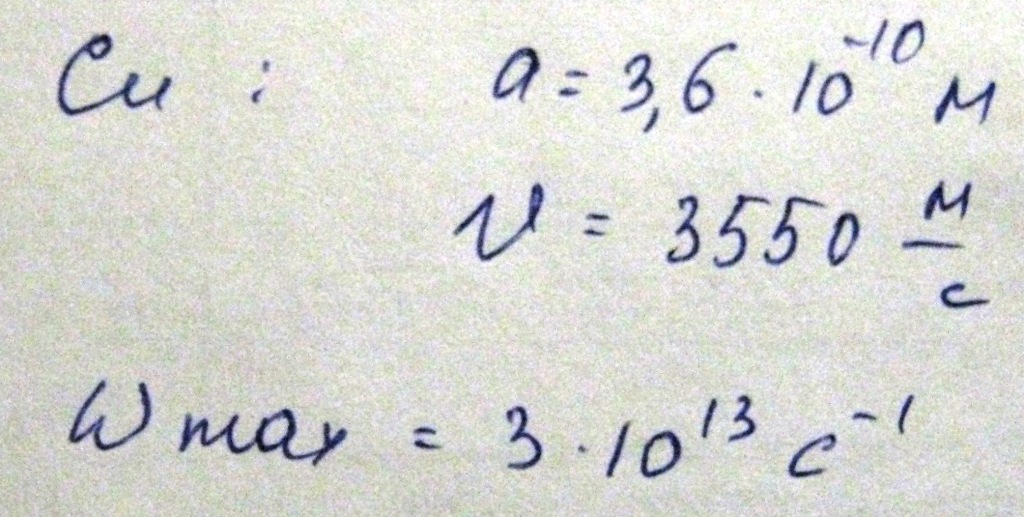 Cu : a = 3,6 · 10⁻¹⁰ м
v = 3550 м/с
ωmax = 3 · 10¹³ с⁻¹